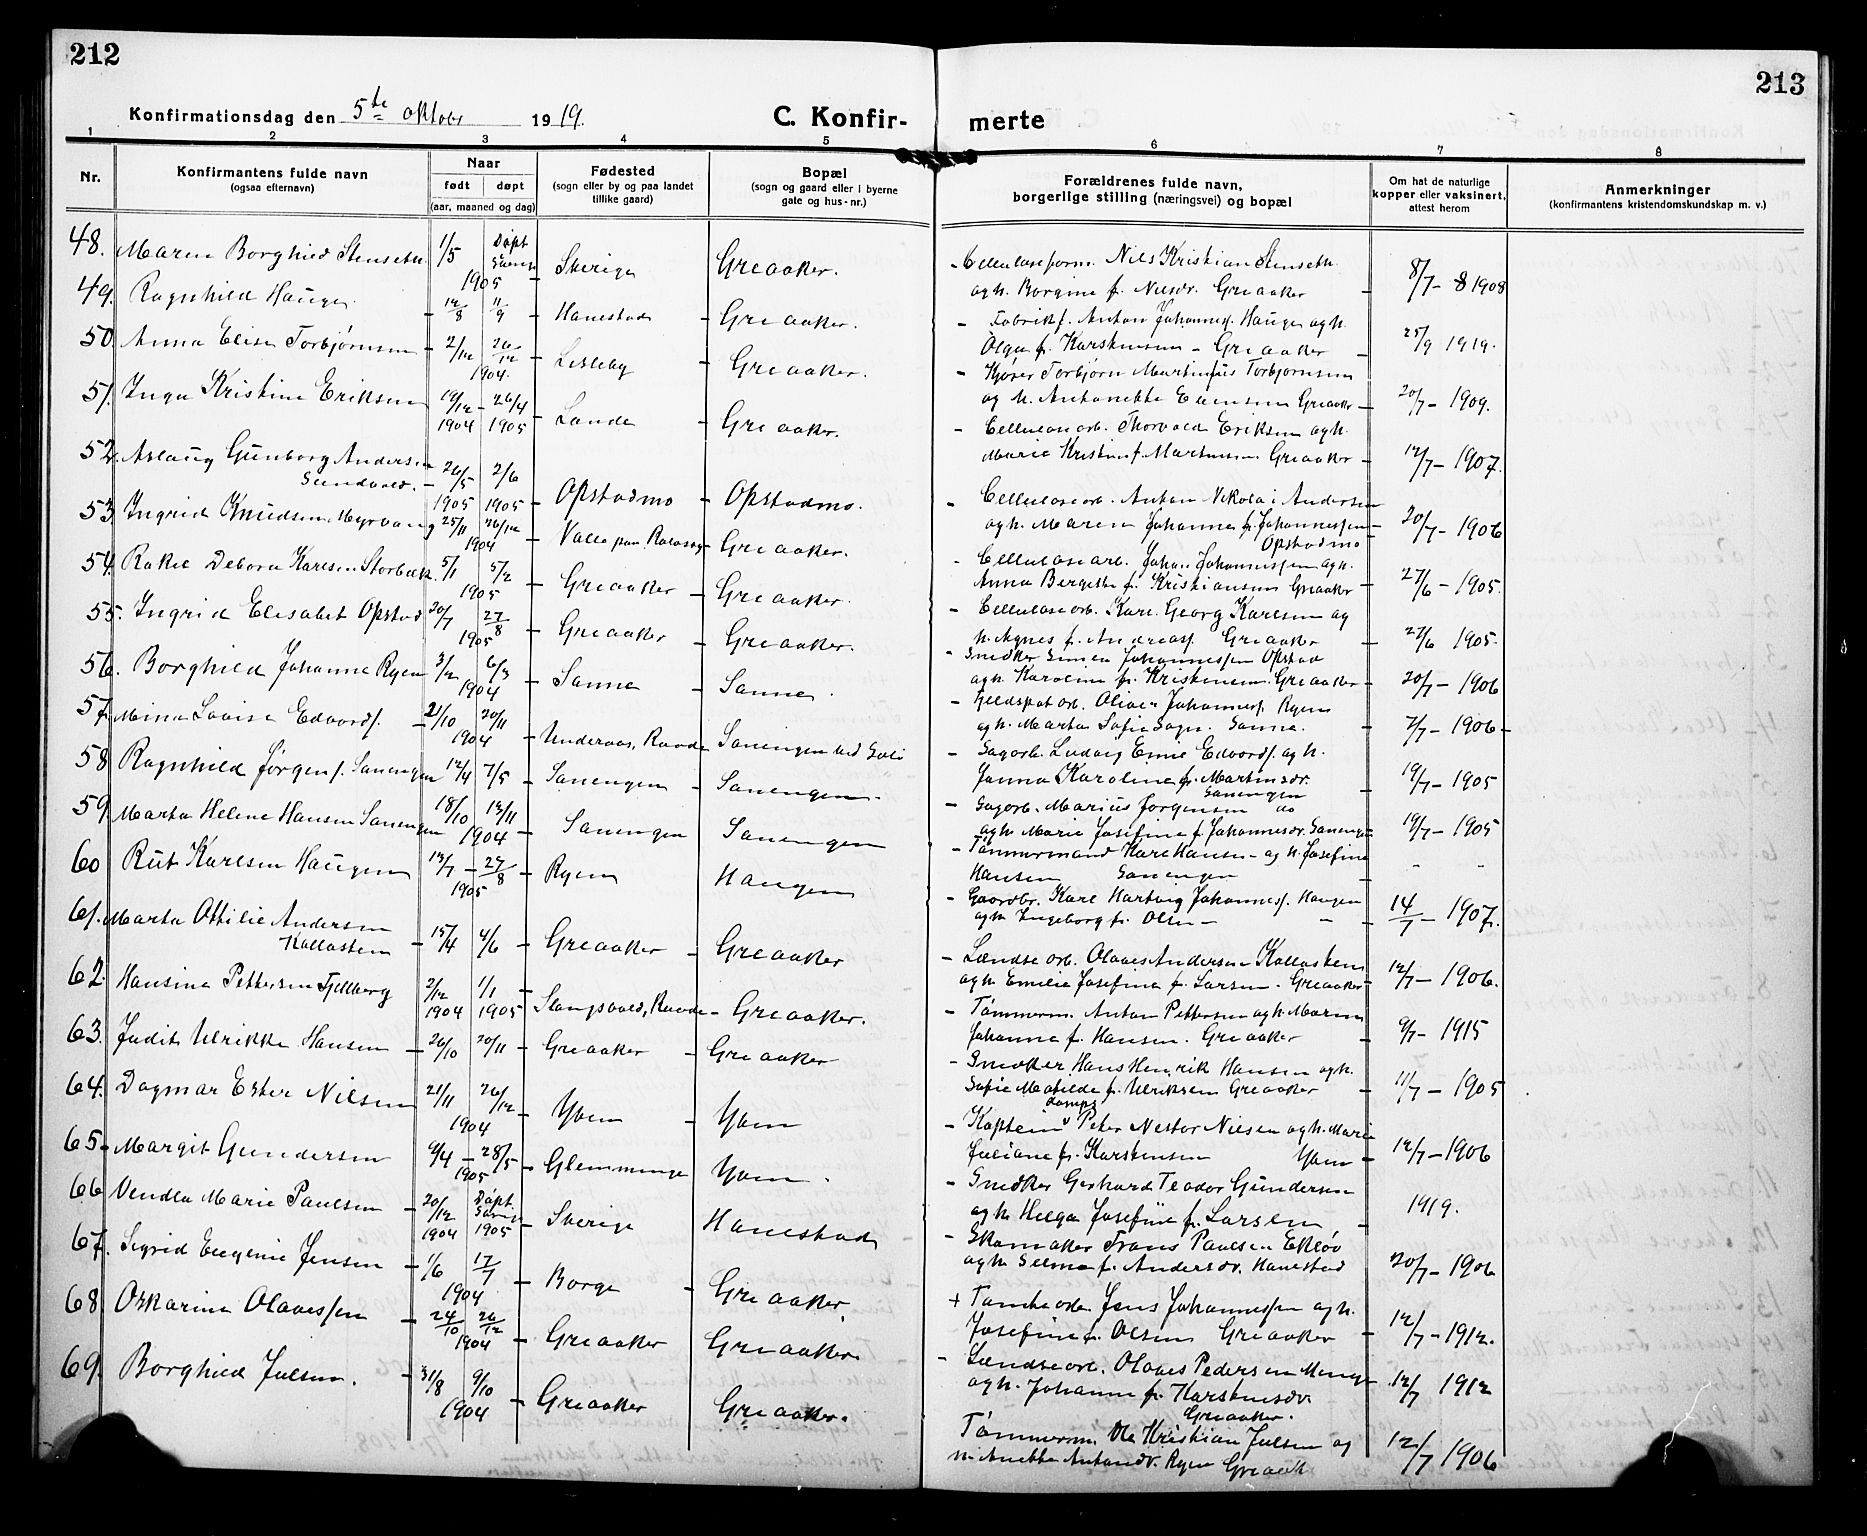 212
213
Konfirmationsdag den 5te oktobr 1919.
C. Konfirmerte
1 2 3 4 5 6 7 8
Nr.
Konfirmantens fulde navn
(ogsaa efternavn)
Naar
født døpt
(aar, maaned og dag)
Fødested
(sogn eller by og paa landet
tillike gaard)
Bopæl
(sogn og gaard eller i byerne
gate og hus-nr.)
Forældrenes fulde navn,
borgerlige stilling (næringsvei) og bopæl
Om hat de naturlige
kopper eller vaksinert,
attest herom
Anmerkninger
(konfirmantens kristendomskundskap m. v.)
48. Maren Borghild Stenseth 1/5 Døpt 1905 Sverige Greaaker.
Celluloseform. Nils Kristian Stenseth
og h. Borgine f. Nilsdr. Greaaker 8/7 - 1908
49. Ragnhild Haugen 14/8 11/9 Hanestad Greaaker.
Fabrikf. Anton Johannesf. Haugen og h.
Olga f. Karstensen - Greaaker 25/9 1919.
50. Anna Elise Torbjørnsen 2/12 26/12 1904. Lisleby Greaaker.
Kjører Torbjørn Martinius Torbjørnsen
og h. Antonette Greaaker 20/7 - 1909.
51. Inga Kristine Eriksen 19/12 1904 - 26/4 1905 Lande Greaaker.
Cellulosearb. Thorvald Eriksen og h.
Marie Kristine f. Martinsen Greaaker 12/7 - 1907.
52. Aslaug Gunborg Andersen
Sundvold. 26/5 1905 2/6 1905 Opstadmo - Opstadmo.
Cellulosearb. Anton Nikolai Andersen
og h. Maren Johanne f. Johannessen
Opstadmo 20/7 - 1906
53. Ingrid Knudsen Myrvang 25/11 26/12 1904 Greaaker.
Cellulosearb. Johan Johannessen og h.
Anna Bergitte f. Kristiansen Greaaker 27/6 - 1905.
54. Rakel Debora Karlsen Storbæk. 5/1 5/2 1905 Greaaker - Greaaker.
Cellulosearb. Karl Georg Karlsen og
h. Agnes f. Andreasf. Greaaker 27/6 1905.
55. Ingrid Elisabet Opstad 20/7 27/8 1905 Greaaker Greaaker.
Snedker Simen Johannessen Opstad
og h. Karoline f. Kristensen. Greaaker 20/7 - 1906
56. Borghild Johanne Ryen 3/12 6/3 1904 Sanne - Sanne.
Feldspat arb. Oliver Johannesf. Ryen
og h. Marta Sofie Sagn. Sanne. 7/7 - 1906
57. Mina Lovise Edvardsf. 21/10 20/11 1904 Underaas, Raade Sanengen ved
Sagarb. Ludvig Emil Edvardsf. og h.
Janna Karoline f. Martinsdr.
Sanengen 19/7 - 1905
58 Ragnhild Jørgensf. Sanengen 12/4 7/5 Sanengen - Sanengen -
Sagarb. Marius Jørgensen do
og h. Marie Josefine f. Johannesdr. Sanengen 19/7 - 1905
59. Marta Helene Hansen Sanengen 18/10 13/11 1904 Sanengen Sanengen
Tømmermand Karl Hansen - og h. Josefine
Hansen Sanengen - -
60 Rut Karlsen Haugen 13/7 - 27/8 1905 Ryen Haugen
Gaardbr. Karl Hartvig Johannesf. Haugen
og h. Ingeborg f. Olsen - - 14/7 - 1907.
61. Marta Ottilie Andersen
Kallasten 15/4 4/6 Greaaker - Greaaker
Lændse arb. Olaves Andersen Kallasten
og h. Emilie Josefine f. Larsen - Greaaker 12/7 - 1906.
62. Hansine Pettersen Fjellberg 2/12 1904 1/1 1905 Slangsvold, Raade - Greaaker.
Tømmerm. Anton Pettersen og h. Maren
Johanne f. Hansen. Greaaker 9/7 - 1915
63. Judit Ulrikke Hansen 26/10 20/11 Greaaker Greaaker
Snedker Hans Henrik Hansen og h.
Sofie Matilde f. Ulriksen Greaaker 11/7 - 1905
64. Dagmar Ester Nilsen 21/11 26/12 1904 Yven Yven
Kaptein Peter Nestor Nilsen og h. Marie
Juliane f. Karstensen Yven 12/7 - 1906
65. Margit Gundersen 9/4 - 28/5 1905 Glemminge Yven.
Snedker Gerhard Teodor Gundersen
og h. Helga Josefine f. Larsen 1919.
66 Vendla Marie Paulsen 20/12 1904 Døpt 1905 Sverige Hanestad
Skomaker Frans Paulsen Ekløv
og h. Selma f. Andersdr. Hanestad 20/7 - 1906
67. Sigrid Eugenie Jensen 1/6 17/7 1904 Borge Greaaker
+ Tomtearb. Jens Johannessen og h.
Josefine f. Olsen Greaaker 12/7 - 1912.
68. Oskarine Olavessen 24/10 26/12 1904 Greaaker Greaaker
Lændse arb. Olaves Pedersen
og h. Johanne f. Karstensdr.
Greaaker. 12/7 1912
69. Borghild Julsen. 31/8 9/10 1904 Greaaker Greaaker.
Tømmerm. Ole Kristian Julsen og
h. Anette Antondr. Ryen Greaak 12/7 1906